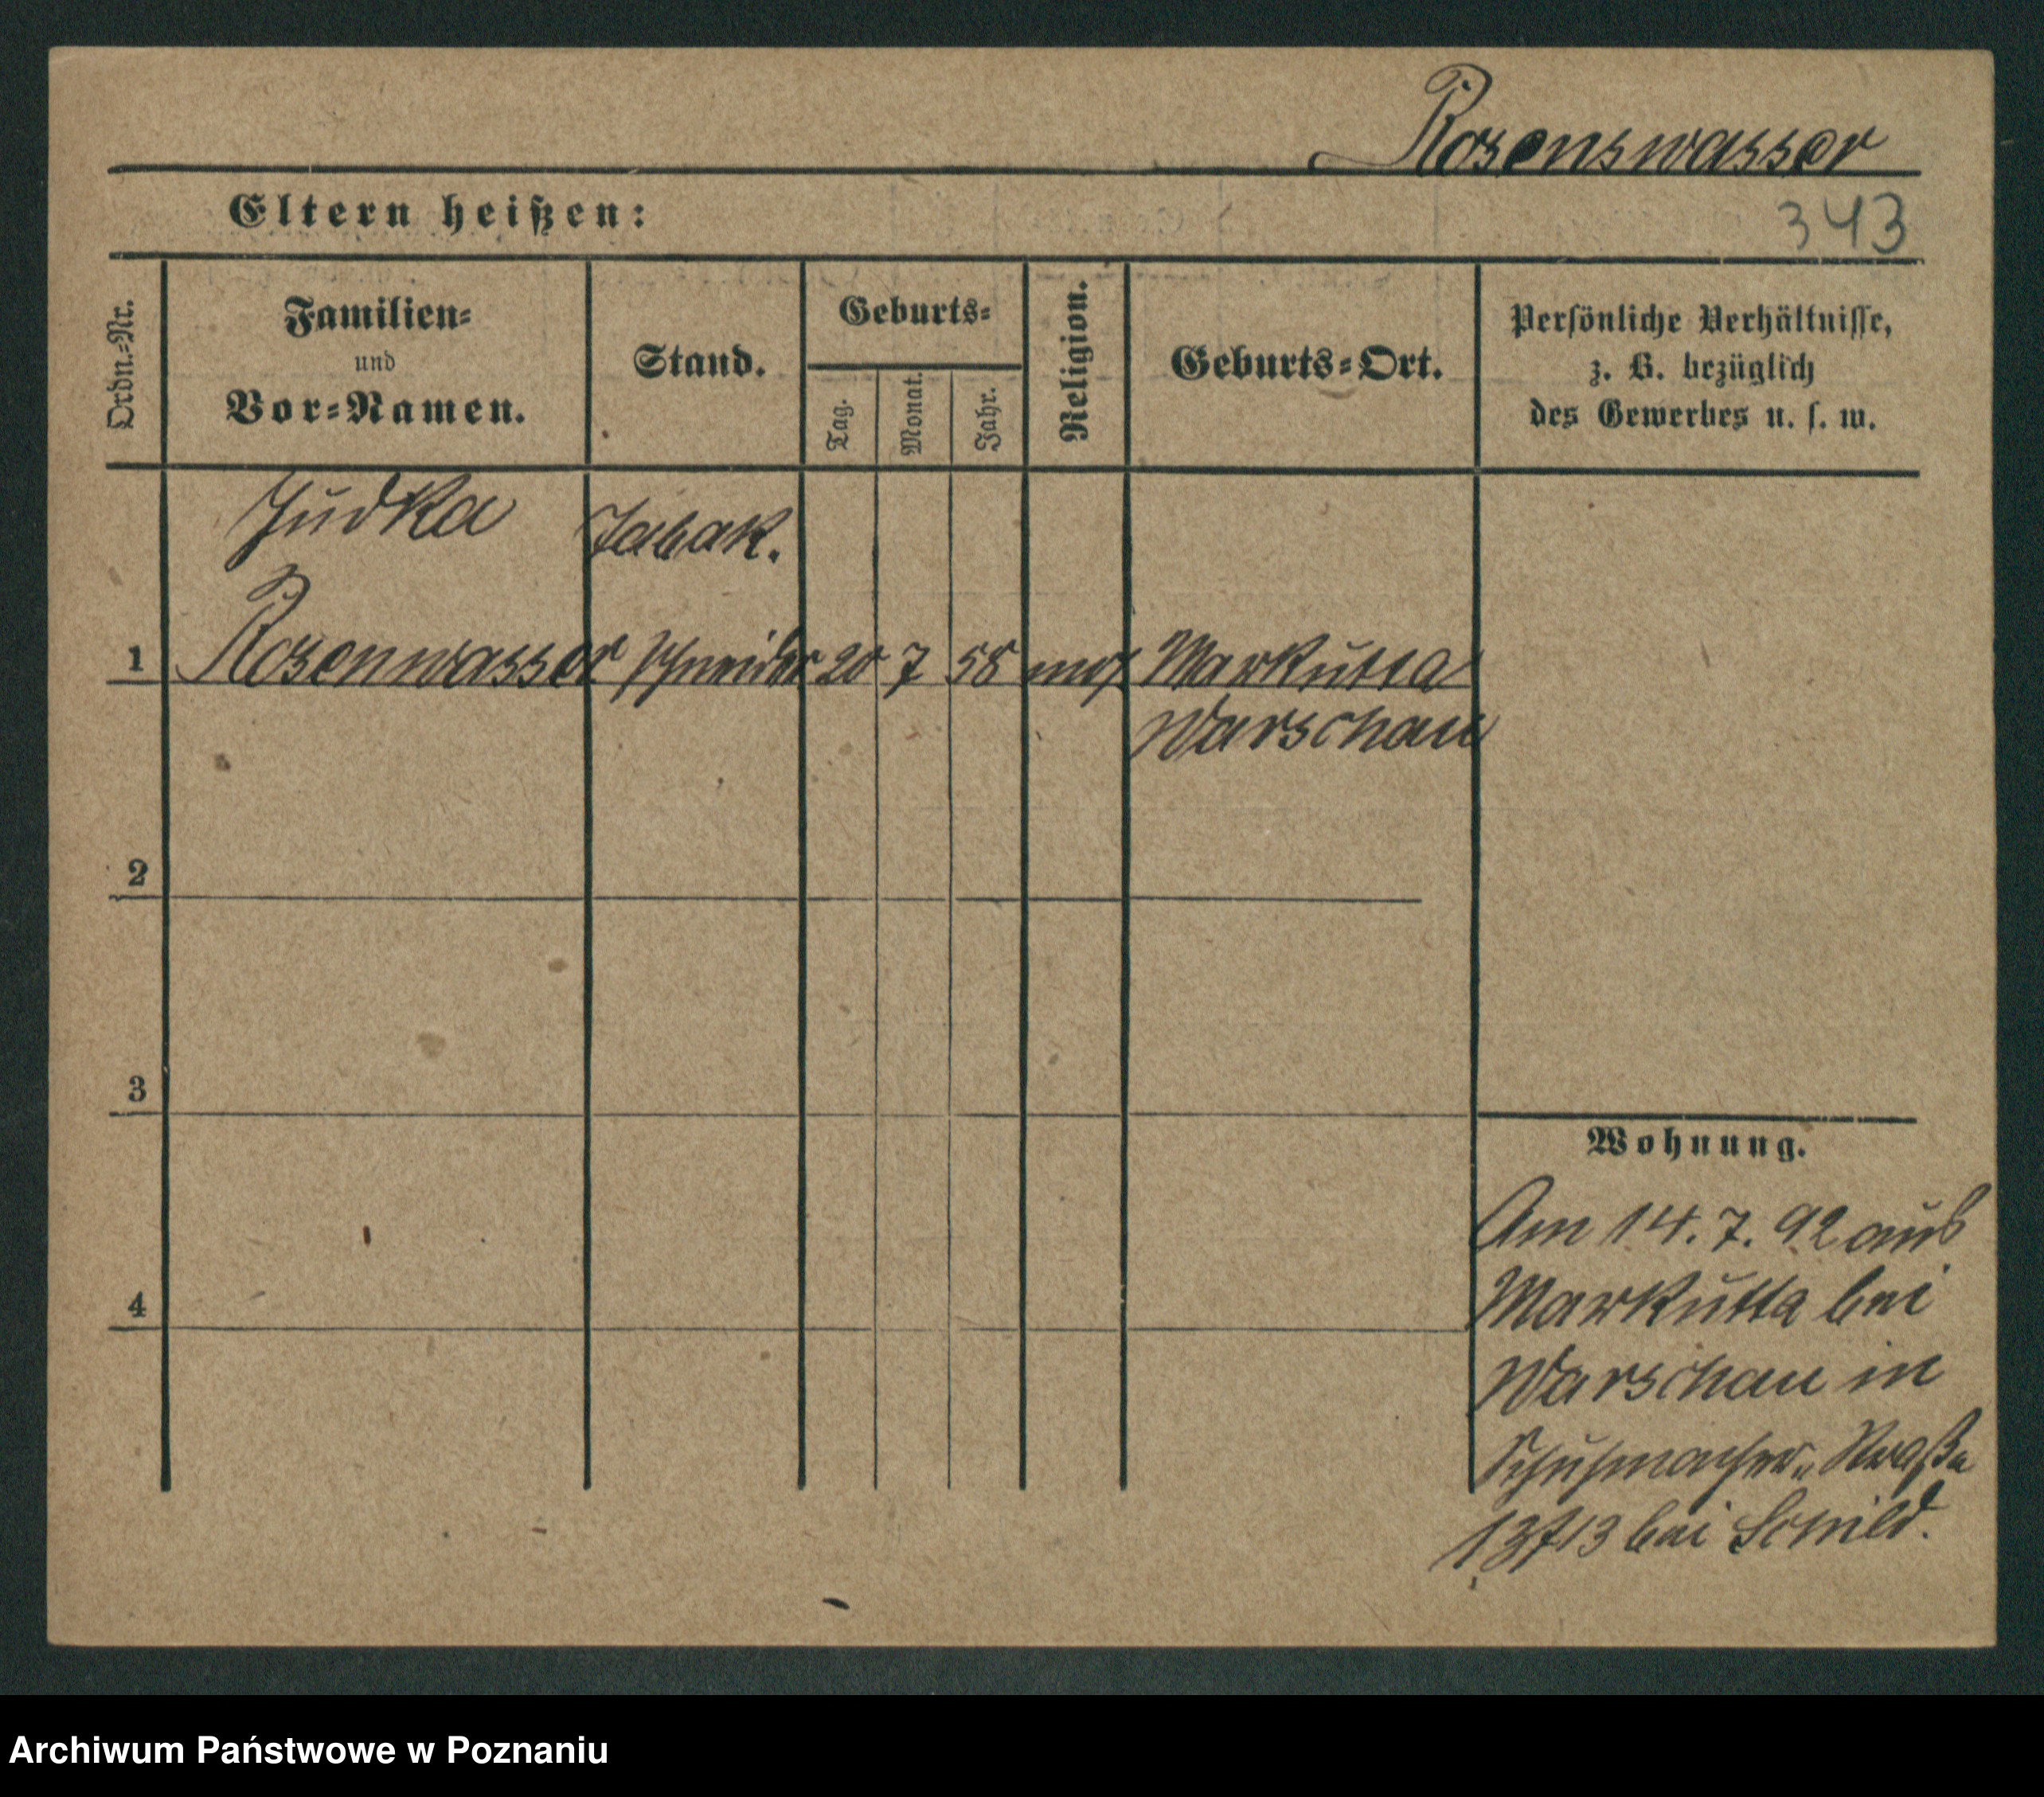 Rosenswasser
Eltern heißen:
343
Ordn.-Nr.
Familien-
und
Vor-Namen.
Stand.
Geburts-
Tag.
Monat.
Jahr.
Religion.
Geburts-Ort.
Persönliche Verhältnisse,
z. B. bezüglich
des Gewerbes u. s. w.
Judka
Tabak.
1 Rosenwasser schneider 20 7 58 mos Markutta
Warschau
2
3
4
Wohnung.
Am 14. 7. 92 aus
Markutta bei
Warschau in
Schuhmacher„ Straße
bei Schild.
Archiwum Państwowe w Poznaniu